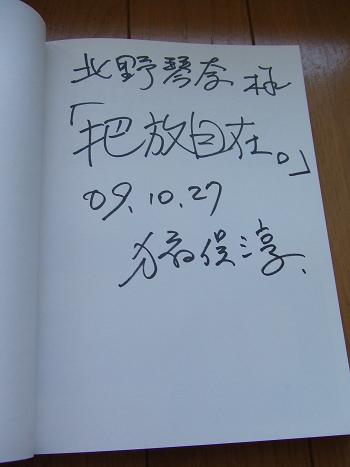 北野琴奈様
「把放自在。」
09.10.27
猪俣淳.